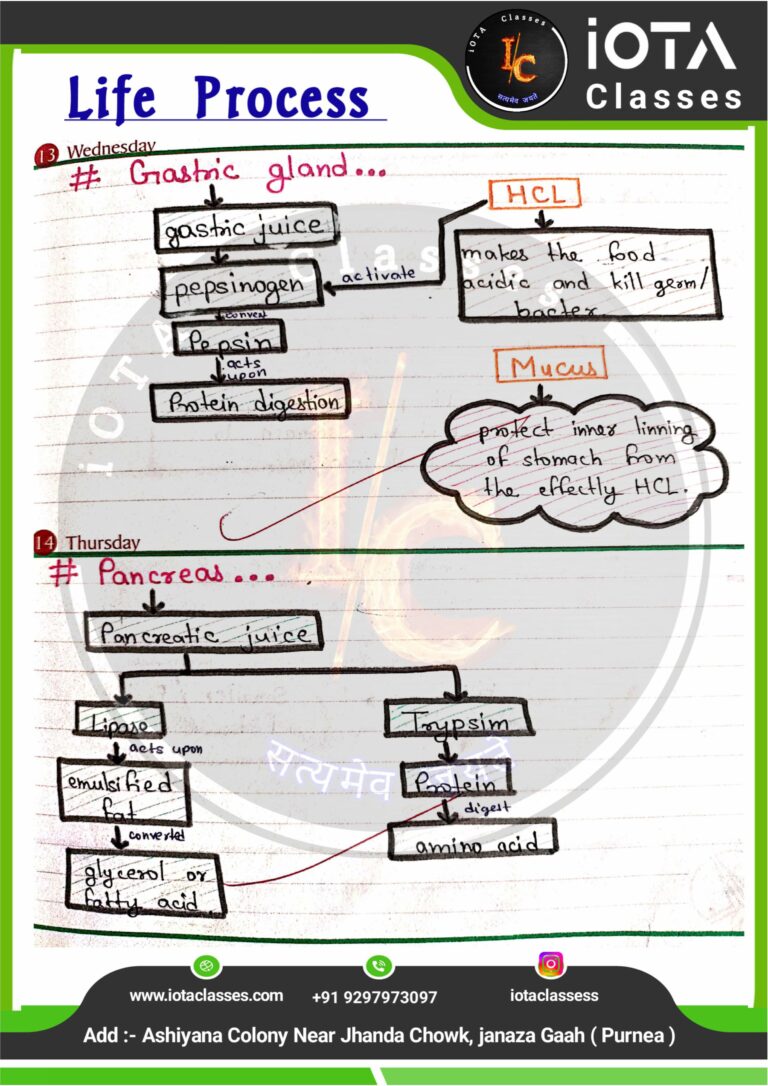 iOTA Classes
I/C
सत्यमेव जयते
iOTA
Classes
Life Process
13 Wednesday
# Gastric gland...
HCL
gastric juice
makes the food
acidic and kill germ/
bacter
activate
pepsinogen
convert
Pepsin
acts
upon
Protein digestion
Mucus
protect inner linning
of stomach from
the effectly HCL.
iOTA Classes
I/C
सत्यमेव जयते
14 Thursday
# Pancreas...
Pancreatic juice
Lipase
Trypsim
acts upon
emulsified
fat
Protein
digest
converted
amino acid
glycerol or
fatty acid
www.iotaclasses.com
+91 9297973097
iotaclassess
Add :- Ashiyana Colony Near Jhanda Chowk, janaza Gaah ( Purnea )